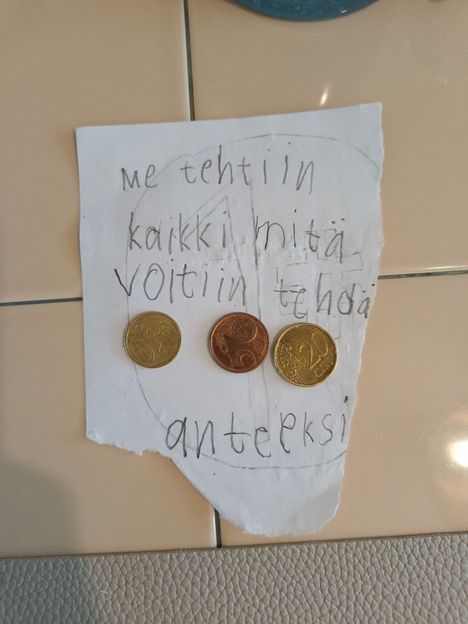 Me tehtiin
kaikki mitä
voitiin tehdä
20
anteeksi